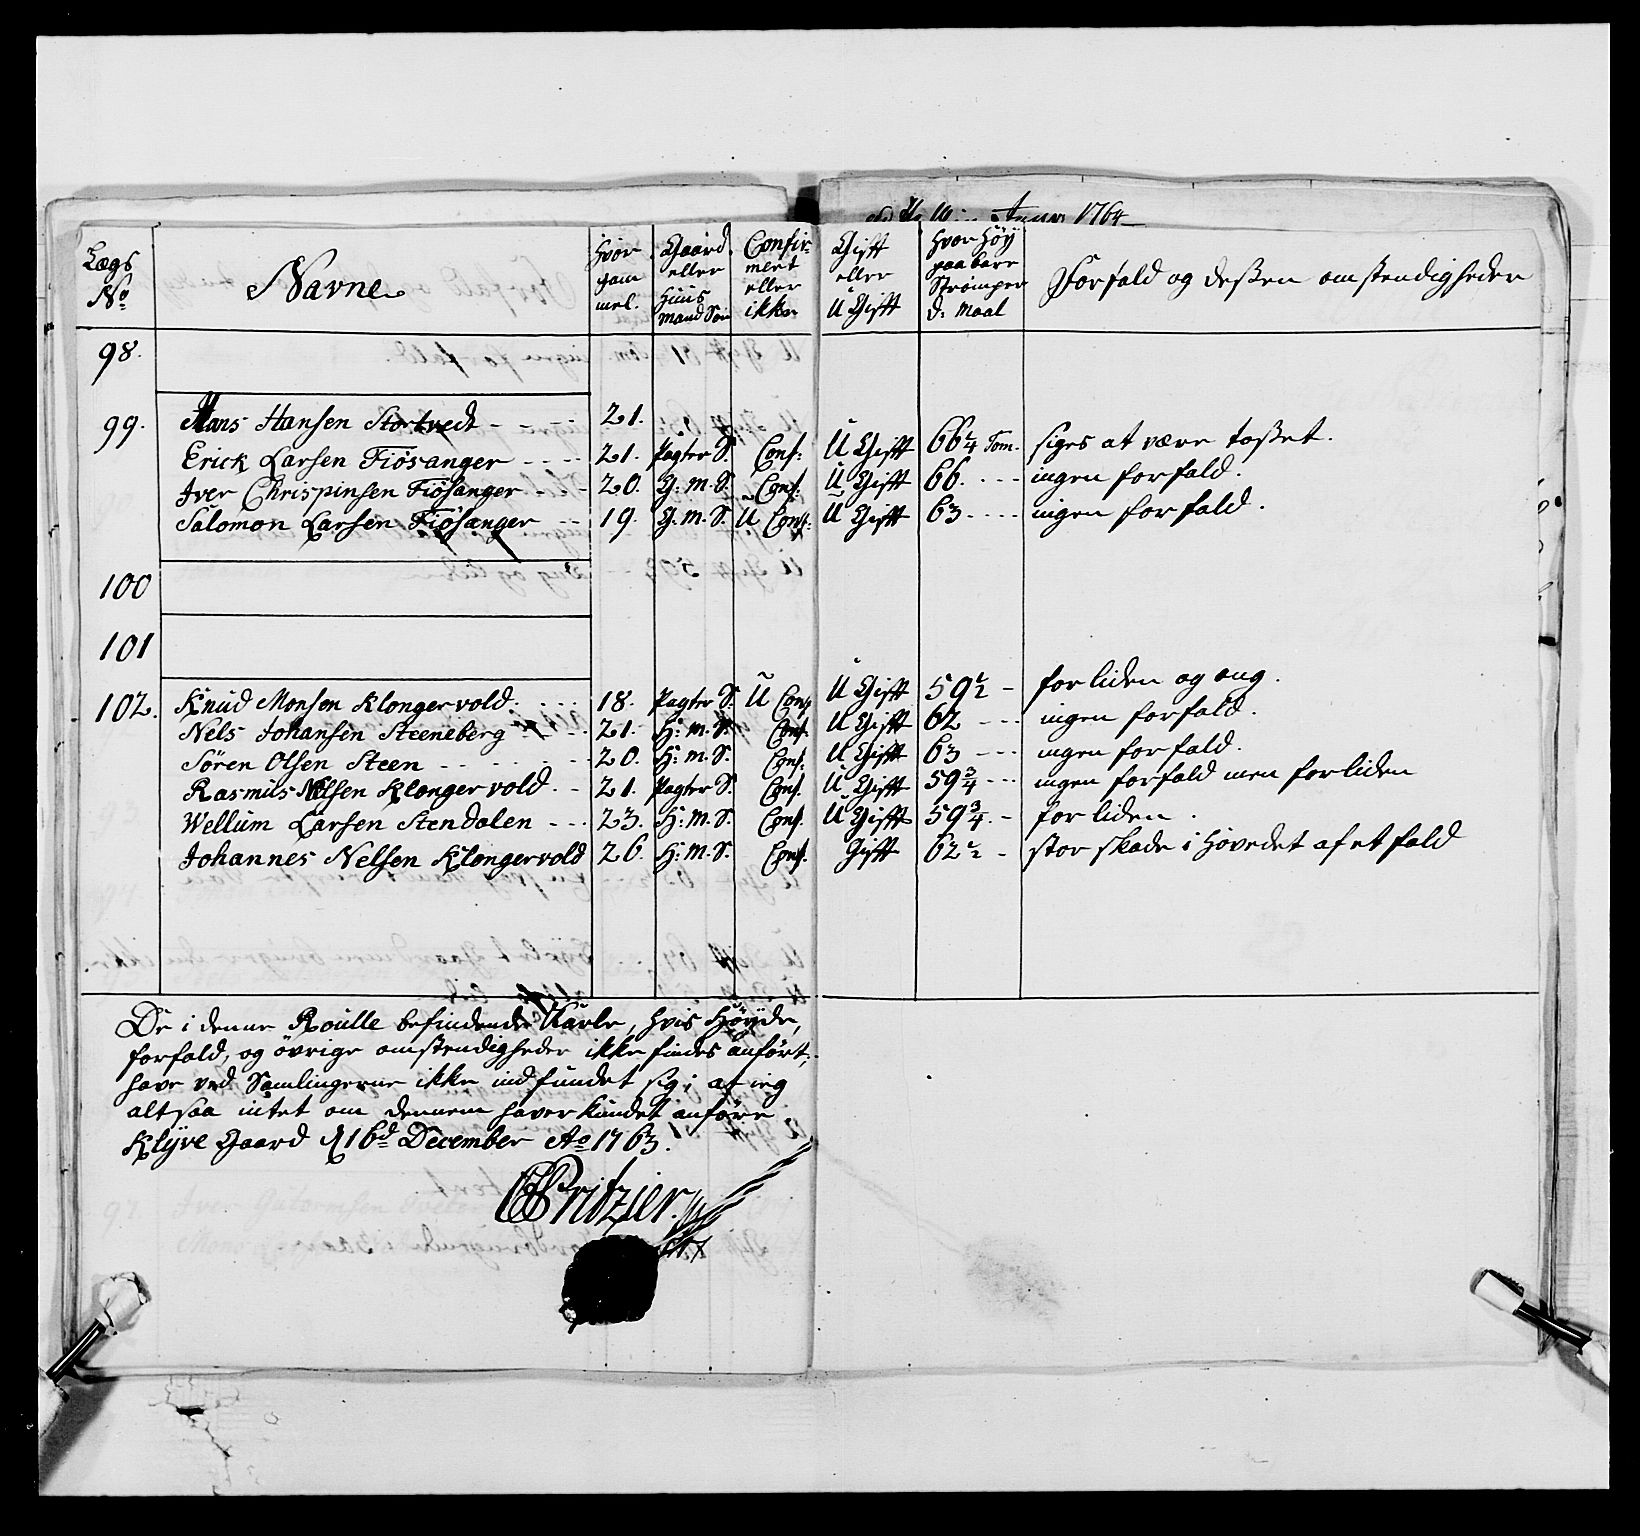 Anno 1764
Lægs No | Navne | Hvor gam mel. | Gaard eller Huus mand Søn | Confir- mert eller ikke | Gift eller U Gift | Hvor Høy paa bare Strømper d: Maal | Forfald og deßen omstendigheder
98.
99. Hans Hansen Stortvedt - - - 21.
Erick Larsen Fiøsanger - - - 21. Pagter S. Conf: U Gift 66 1/4 Tom. siges at være toßet.
Iver Chrispinsen Fiøsanger - - 20. G: M. S. Conf: U Gift 66. - - - ingen forfald.
Salomon Larsen Fiøsanger - - 19. G. M. S. U Conf: U Gift 63 - - - - ingen forfald.
100
101
102. Knud Monsen Klongervold. - - - 18. Pagter S. U Conf U Gift 59 1/2 - for liden og ung.
Nels Johansen Steeneberg - - - 21. H: M. S. Conf. U Gift 62 - - - ingen forfald.
Søren Olsen Steen - - - - - - 20. H: M. S. Conf: U Gift 63 - - - ingen forfald.
Rasmus Nelsen Klongervold. - - 21. Pagter S. Conf. U Gift 59 3/4 - - - ingen forfald men for liden
Wellum Larsen Stendalen - - - 23. H: M. S. Conf. U Gift 59 3/4. - for liden.
Johannes Nelsen Klongervold 26. H: M. S. Conf. Gift 62 1/2 - stor skade i Hovedet af et fald
De i denne Roulle befindende Karle, hvis Høyde,
forfald, og øvrige omstendigheder ikke findes anført,
have ved Samlingerne ikke indfundet sig; at ieg
altsaa intet om dennem haver kundet anføre.
Klyve Gaard d 16d December Ao 1763.
Pritzier.